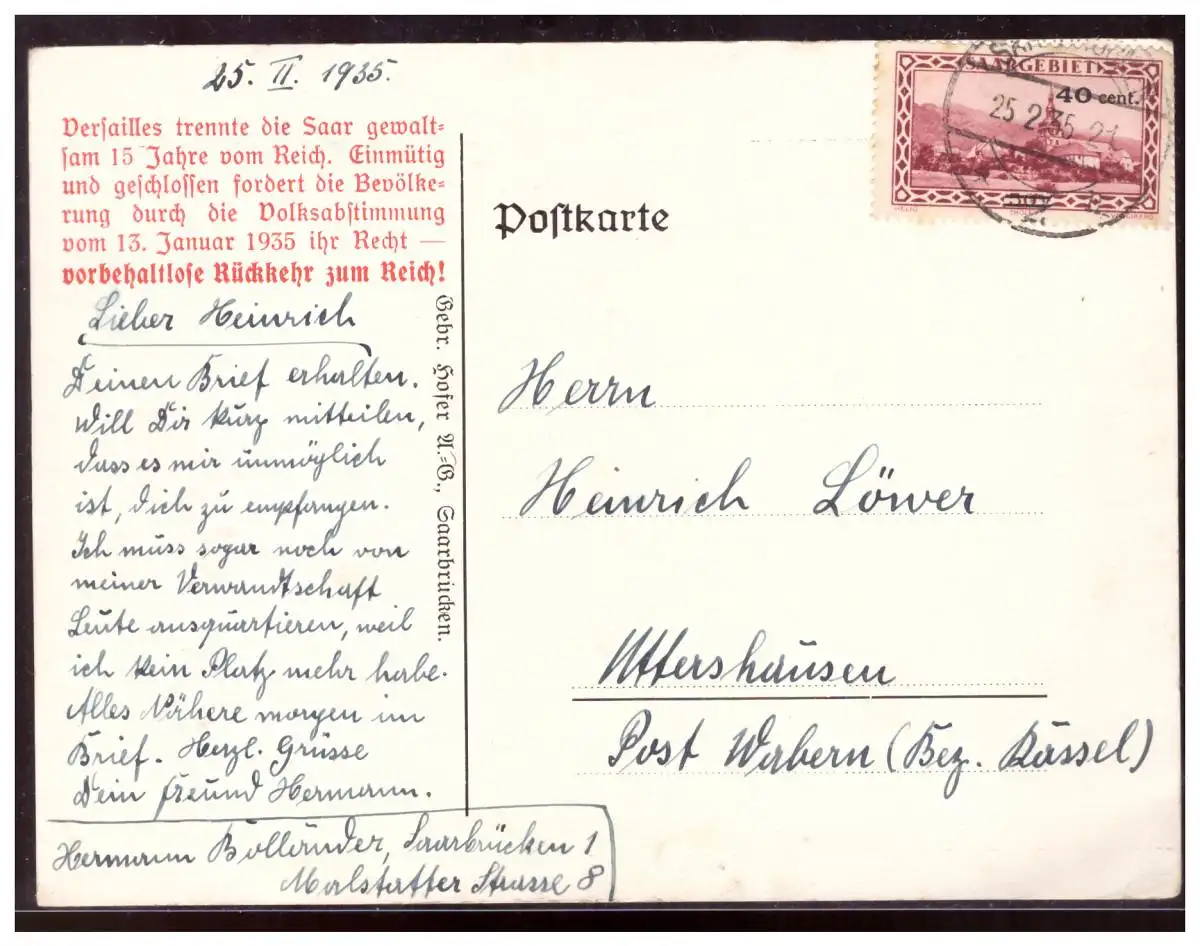 25. II. 1935.
Versailles trennte die Saar gewalt=
sam 15 Jahre vom Reich. Einmütig
und geschlossen fordert die Bevölke=
rung durch die Volksabstimmung
vom 13. Januar 1935 ihr Recht —
vorbehaltlose Rückkehr zum Reich!
Lieber Heinrich
Deinen Brief erhalten.
Will Dir kurz mitteilen,
dass es mir unmöglich
ist, dich zu empfangen.
Ich muss sogar noch von
meiner Verwandtschaft
Leute ausquartieren, weil
ich kein Platz mehr habe.
Alles Nähere morgen im
Brief. Herzl. Grüsse
Dein Freund Hermann.
Hermann Bolländer, Saarbrücken 1
Malstatter Strasse 8
Gebr. Hofer A.=G., Saarbrücken.
Postkarte
SAARGEBIET
40 cent.
25.2.35 21
HELIO
Herrn
Heinrich Löwer
Uttershausen
Post Wabern (Bez. Kassel)